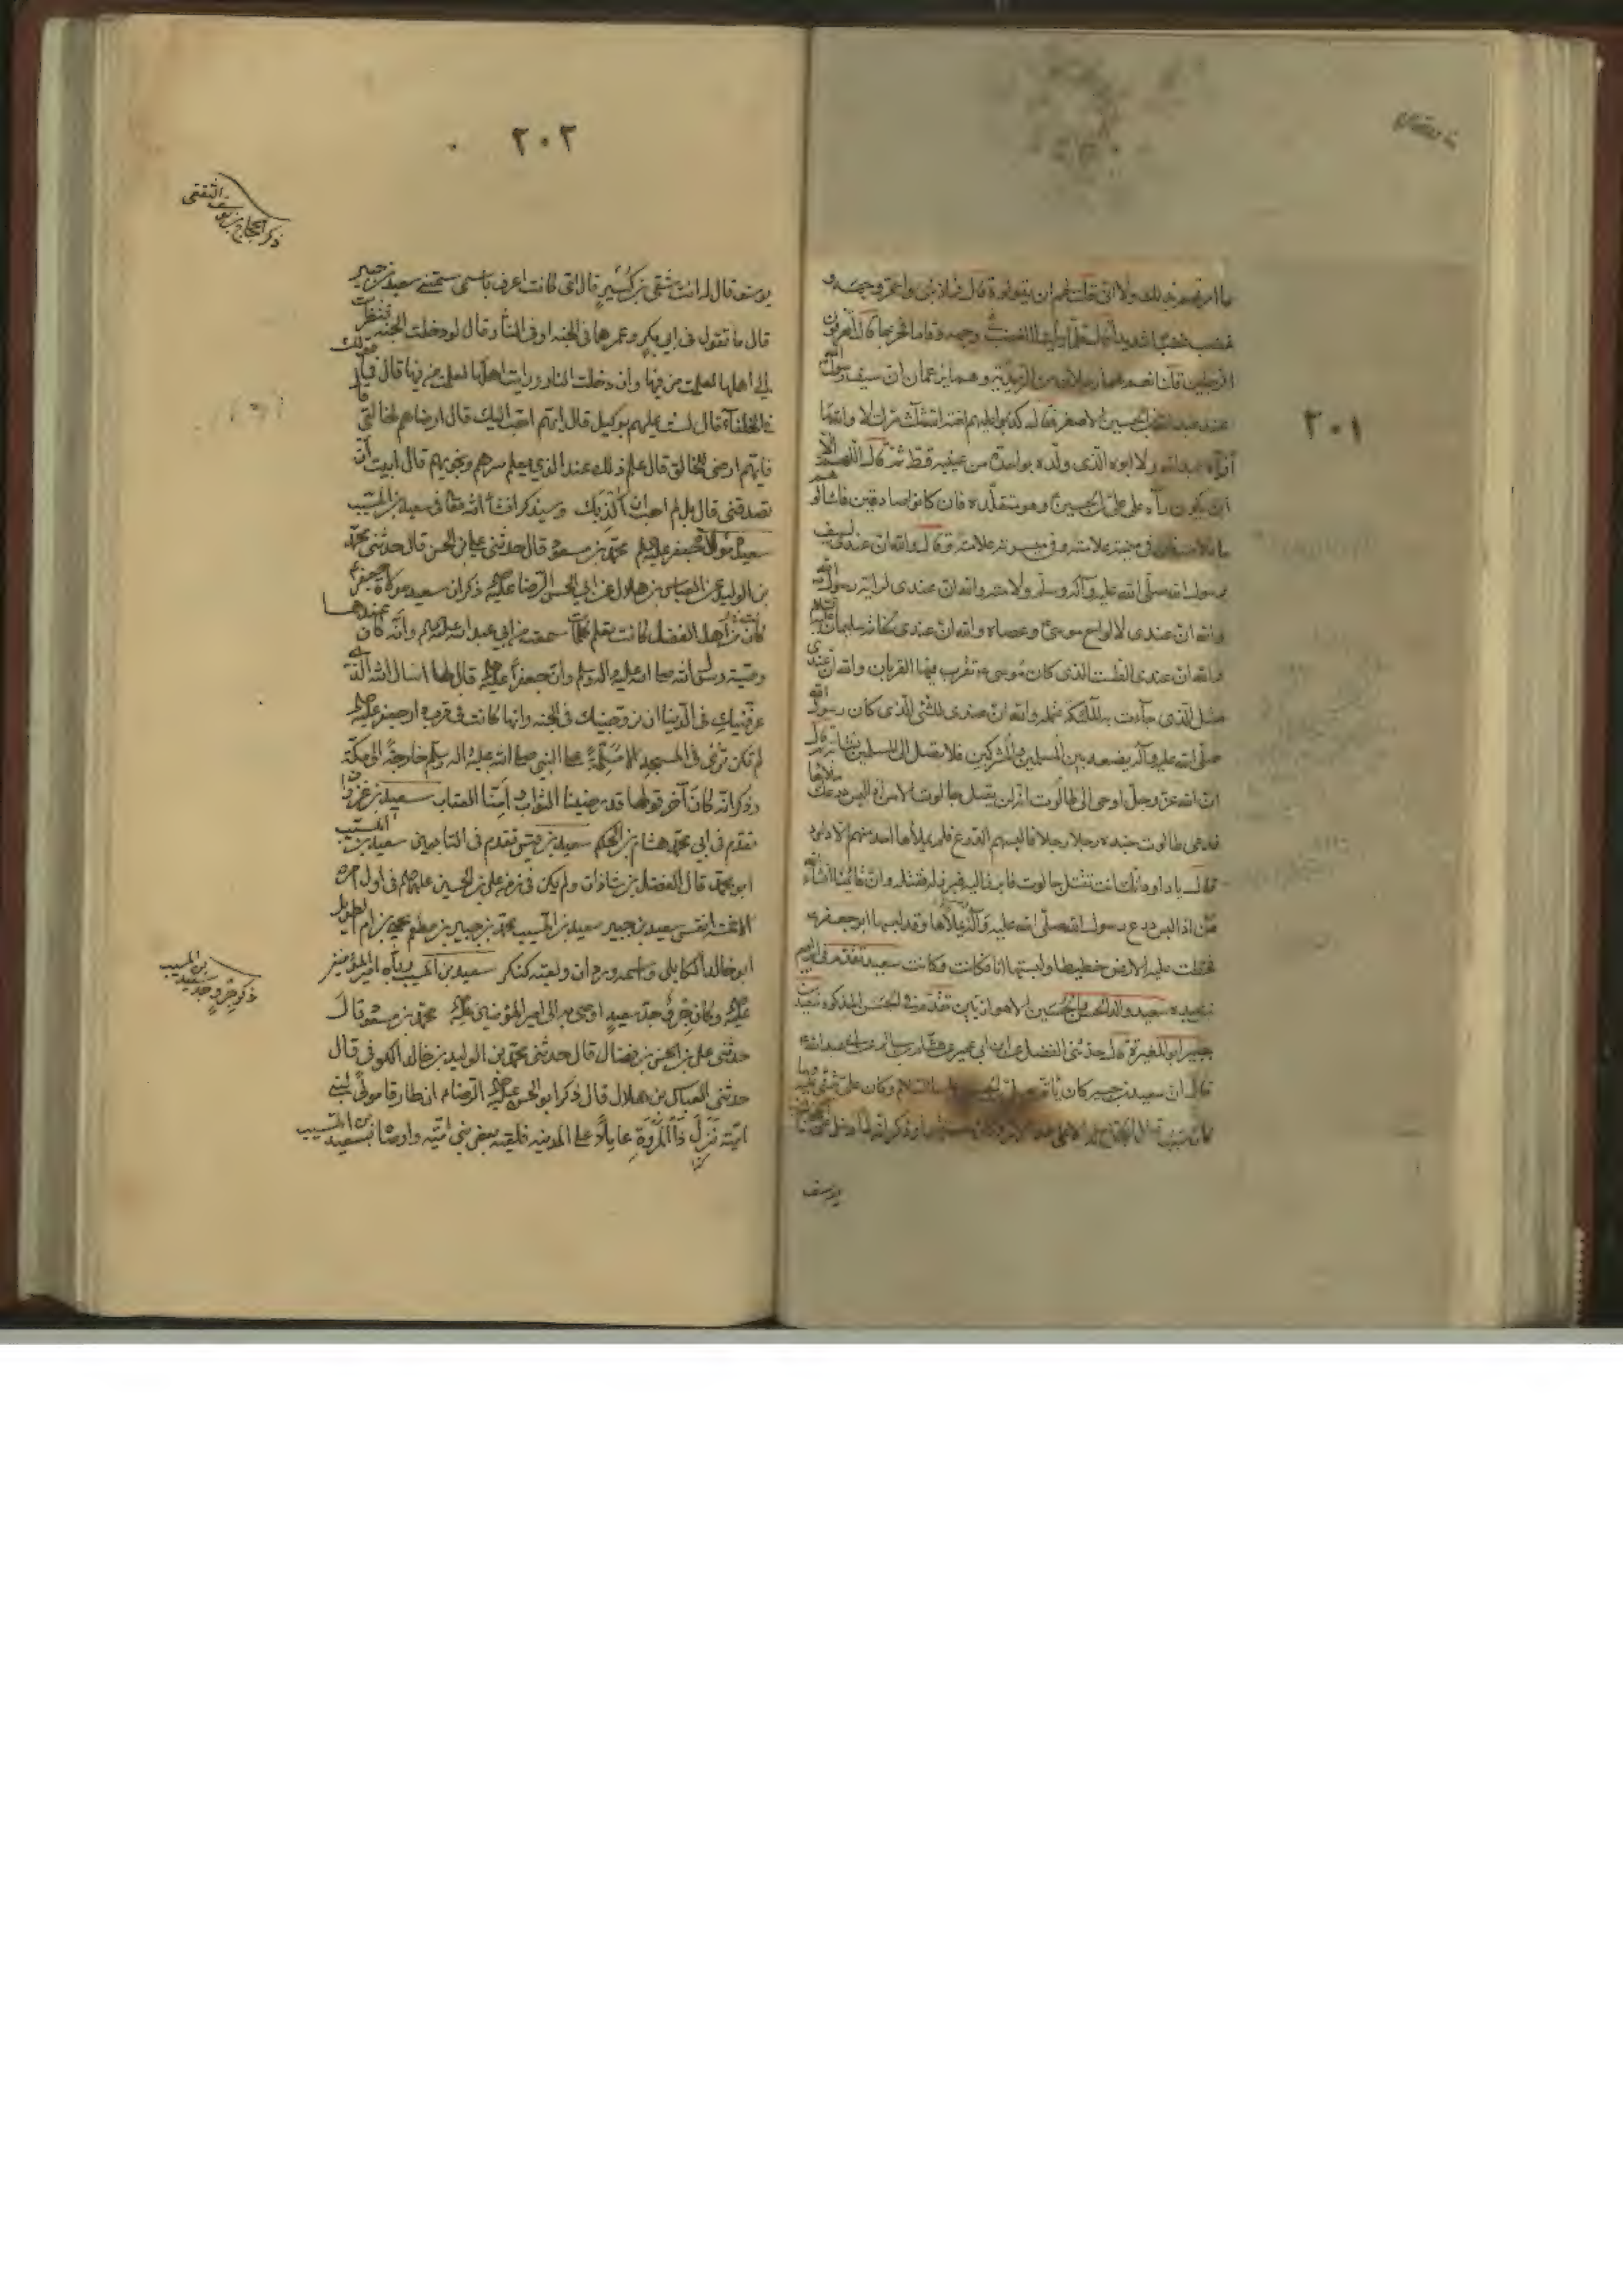 ٣٠١
ما امرتهم بذلك ولا اني قلت لهم ان يقولوه قال فبلا بني واحمر وجهه و
غضب غضبا شديدا قال فلما رأيا الغضب في وجهه قاما فخرجا قال اتعرفون
الرجلين قلنا نعم هما رجلان من الزيدية وهما يزعمان ان سيف رسول الله
عند عبدالله بن الحسين الاصغر فقال كذبوا عليهم لعنة الله ثلاث مرات لا والله ما
رآه عبدالله ولا ابوه الذي ولده بواحدة من عينيه قط ثم قال اللهم الا
ان يكون رآه على علي بن الحسين وهو متقلده فان كانوا صادقين فاسألوهم
ما علامته في ميمنته علامته وفي ميسرته علامته وقال والله ان عندي لسيف
رسول الله صلى الله عليه وآله وسلم ولامته والله ان عندي لراية رسول الله
والله ان عندي لالواح موسى وعصاه والله ان عندي لخاتم سليمان عليه السلام
والله ان عندي الطست الذي كان موسى يقرب فيها القربان والله ان عندي
مثل الذي جاءت به الملائكة تحمله والله ان عندي للشئ الذي كان رسول الله
صلى الله عليه وآله يضعه بين المسلمين والمشركين فلا يصل الى المسلمين نشابة ثم قال
ان الله عز وجل اوحى الى طالوت انه لن يقتل جالوت الا من اذا لبس درعك ملاها
فدعى طالوت جنده رجلا رجلا فالبسهم الدرع فلم يملأها احد منهم الا داود
فقال يا داود انك انت تقتل جالوت فابرز اليه فبرز له فقتله وان قائمنا انشاء الله
من اذا لبس درع رسول الله صلى الله عليه وآله يملأها وقد لبسها ابو جعفر
فخطت عليه الارض خطيطا ولبستها انا فكانت وكانت سعيد تقدم في
سعيد والد الحسن والحسين الاهوازيين تقدم في الحسن المذكور سعيد بن
جبير ابو المغيرة قال حدثني الفضل عن ابن ابي عمير عن هشام بن سالم عن ابي عبدالله
قال ان سعيد بن جبير كان يأتم بعلي بن الحسين عليه السلام وكان علي يثني عليه وما
كان سبب قتل الحجاج له الا على هذا الامر وكان مستقيما وذكر انه لما دخل على الحجاج بن
يوسف
٣٠٢
ذكر الحجاج بن يوسف الثقفي
يوسف قال له انت شقي بن كُسير قال امي كانت اعرف باسمي سمتني سعيد بن جبير
قال ما تقول في ابي بكر وعمر هما في الجنه او في النار قال لو دخلت الجنه فنظرت
الى اهلها لعلمت من فيها وان دخلت النار ورايت اهلها لعلمت من فيها قال فما قولك
في الخلفاء قال لست عليهم بوكيل قال ايهم احب اليك قال ارضاهم لخالقي قال
فايهم ارضى للخالق قال علم ذلك عند الذي يعلم سرهم ونجويهم قال ابيت ان
تصدقني قال بلى لم احب ان اكذبك وسيذكر انشأ الله تعالى في سعيد بن المسيب
سعيدة مولاة جعفر عليه السلم محمد بن مسعود قال حدثني علي بن الحسن قال حدثني محمد
بن الوليد عن العباس بن هلال عن ابي الحسن الرضا عليه ذكر ان سعيدة مولاة جعفر
كانت من اهل الفضل كانت تعلم كلما سمعت من ابي عبدالله عليه السلم وانه كان عندها
وصية رسول الله صلى الله عليه وآله وسلم وان جعفرا عليه قال لها اسأل الله الذي
عرفنيك في الدنيا ان يزوجنيك في الجنه وانها كانت في قرب دار جعفر عليه
لم تكن ترى في المسجد الا مسلّمة على النبي صلى الله عليه وآله وسلم خارجة الى مكة
وذكر انه كان آخر قولها قد رضينا الثواب وأمنا العقاب سعيد بن غزوان
تقدم في ابي محمد هشام بن الحكم سعيد بن قيس تقدم في التابعين سعيد بن المسيب
ابو محمد قال الفضل بن شاذان ولم يكن في زمن علي بن الحسين عليه السلم في اول امره
الا خمسة انفس سعيد بن جبير سعيد بن المسيب محمد بن جبير بن مطعم يحيى بن ام الطويل
ابو خالد الكابلي واسمه وردان ولقبه كنكر سعيد بن المسيب رباه امير المؤمنين
ذكر حزن وجد سعيد بن المسيب
عليه وكان حزن جد سعيد اوصى به الى امير المؤمنين عليه محمد بن مسعود قال
حدثني علي بن الحسن بن فضال قال حدثني محمد بن الوليد بن خالد الكوفي قال
حدثني العباس بن هلال قال ذكر ابو الحسن عليه الرضاء ان طارقا مولى لبني
امية نزل ذا المروة عاملا على المدينه فلقيه بعض بني امية واوصاه بسعيد بن المسيب
كذا